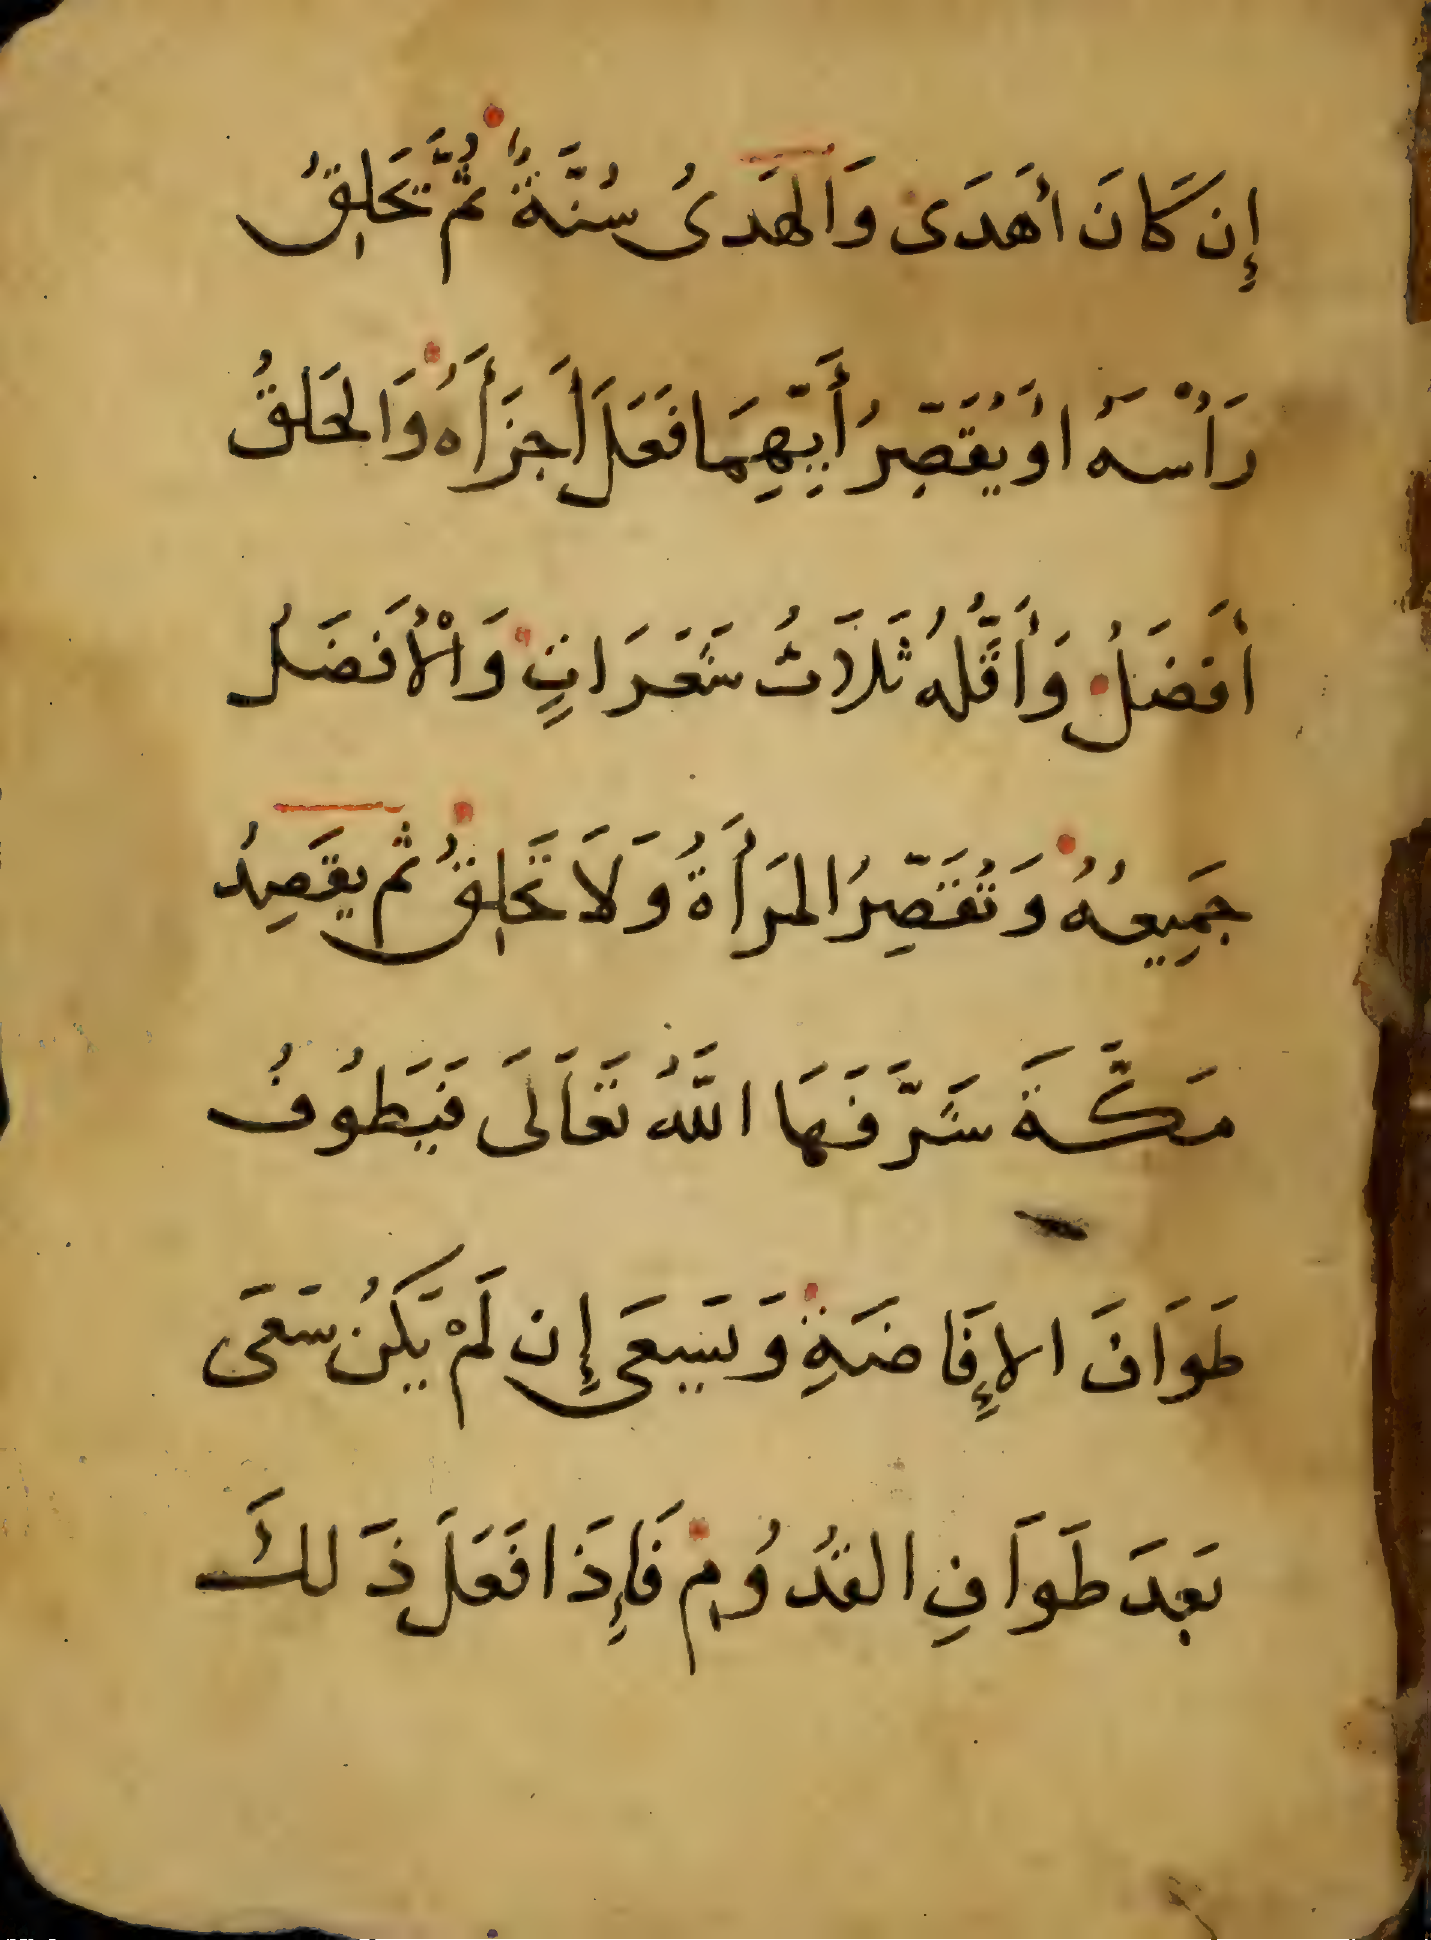 إِن كَانَ أَهدَى وَالهَدىُ سُنَّةً ثُمَّ يَحَلِقُ
رَأْسَهُ اوُ يُقَصِّرُ أَيِّهِمَا فَعَلَ أَجزَأَهُ وَالحَلقُ
أَفضَلُ وَأَقَلُّهُ ثَلَاَثُ شَعَرَاتٍ وَالْأَفضَلُ
جَمِيعُهُ وَتُقَصِّرُ المَرأَةُ وَلَا تَحَلِقُ ثم يقَصِدُ
مَكَّةَ شَرَّفَهَا اللَّهُ تَعَالَى فَيَطُوفُ
طَوَافَ الإِفَاضَةِ وَيَسَعَى إِن لَمْ يَكُن سَعَى
بَعدَ طَوَافِ القُدُومِ فَإِذَا فَعَلَ ذَلكَ